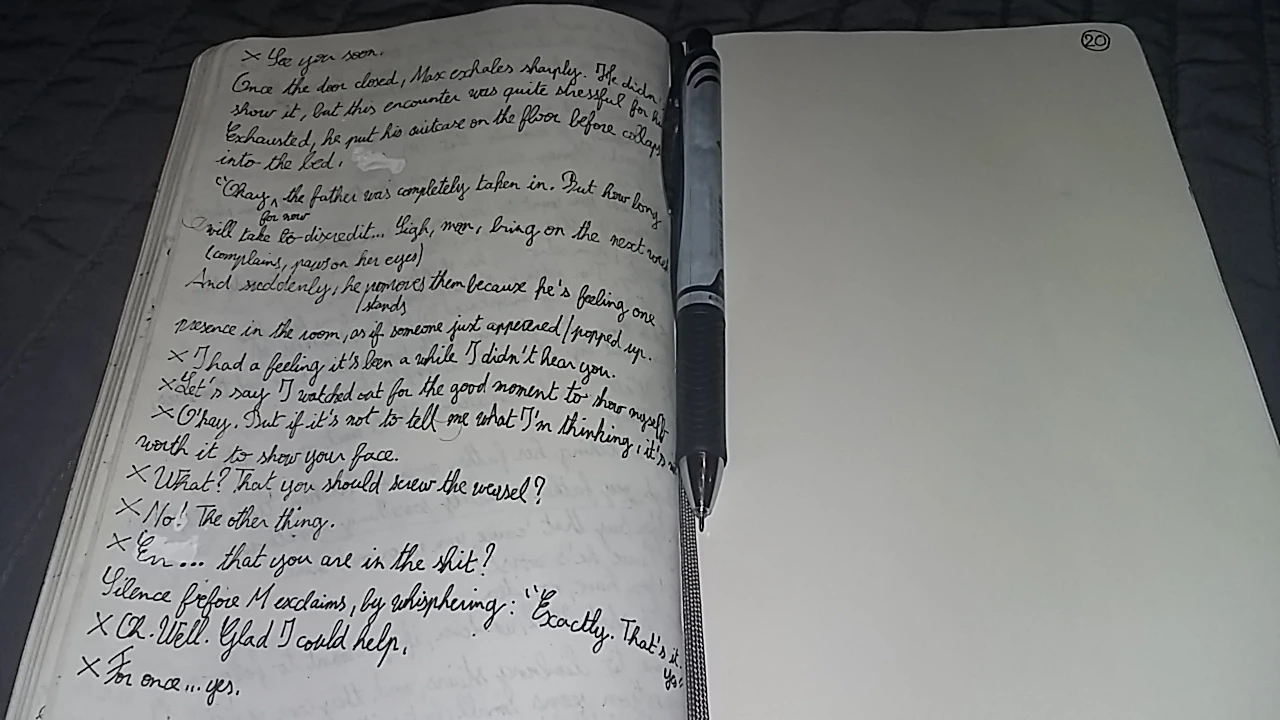 × See you soon.
Once the door closed, Max exhales sharply. He didn'
show it, but this encounter was quite stressful for hi
Exhausted, he put his suitcase on the floor before collaps
into the bed.
"Okay, the father was completely taken in. But how long
for now
will take to discredit... Sigh, man, bring on the next
(complains, paws on her eyes)
And suddenly, he removes them because he's feeling one
/stands
presence in the room, as if someone just appeared/popped up.
× I had a feeling it's been a while I didn't hear you.
× Let's say I watched out for the good moment to show myself
× O'kay. But if it's not to tell me what I'm thinking, it's
worth it to show your face.
× What? That you should screw the weasel?
× No! The other thing.
× Err... that you are in the shit?
Silence before M exclaims, by whisphering: "Exactly. That's it.
× Oh. Well. Glad I could help.
× For once... yes.
20